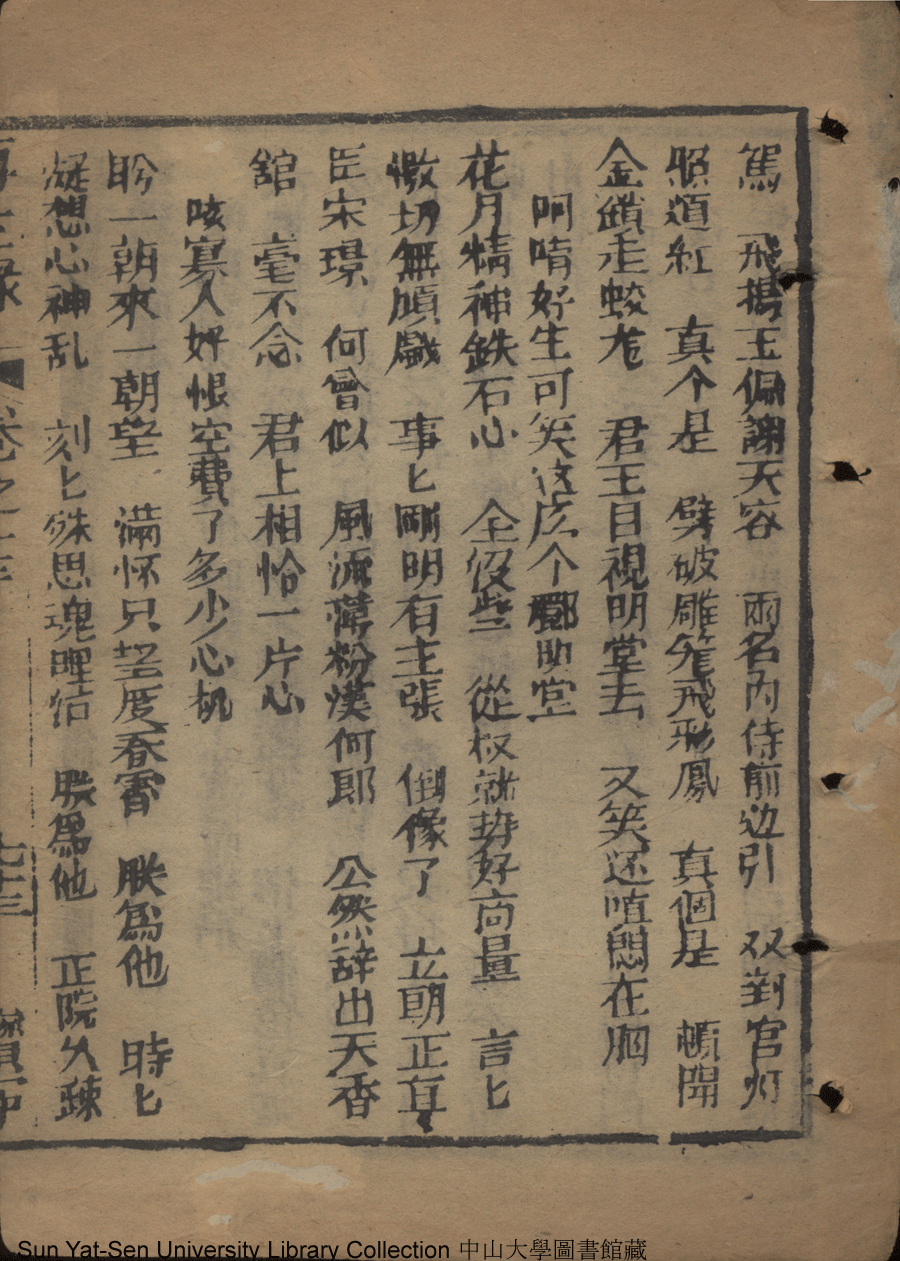 篤 飛擕玉佩謝天容 兩名內侍前边引 双對官灯
照道紅 真个是 劈破雕笼飛彩鳳 真個是 頓開
金鎖走蛟龙 君王目視明堂去 又笑还嗔悶在胸
呵唷好生可笑这庅个酈明堂
花月精神鉄石心 全沒些 從权就势好商量 言匕
慷切無頑戯 事匕剛明有主張 倒像了 立朝正直
臣宋璟 何曾似 風流薄粉漢何郎 公然辞出天香
舘 毫不念 君上相恰一片心
咳寡人好恨空費了多少心机
盼一朝來一朝望 满怀只望度春霄 朕為他 時匕
凝想心神乱 刻匕殊思魂哩 朕爲他 正院久疎
卷之十 七十三
Sun Yat-Sen University Library Collection 中山大學圖書館藏